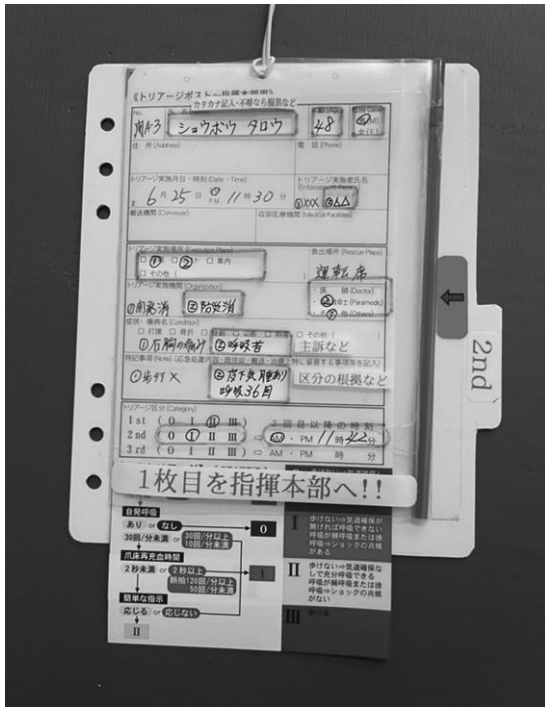 《トリアージポスト⇔指揮本部用》
カタカナ記入・不明なら服装など
No.
ショウボウ タロウ
48
住 所 (Address)
電 話 (Phone)
トリアージ実施月日・時刻 (Date・Time)
トリアージ実施者氏名
2 6月25日 PM 11時30分
①XXX ②△△
搬送機関 (Conveyer)
収容医療機関 (Medical Facilities)
トリアージ実施場所 (Execution Place)
救出場所 (Rescue Place)
□ ① □ ② □ 車内
□ その他 (
運転席
トリアージ実施機関 (Organization)
・医 師 (Doctor)
(Paramedic)
他 (Others)
症状・傷病名 (Condition)
□ 打撲 □ 骨折 □ その他 (
①右胸の痛み ②呼吸苦 主訴など
特記事項 (Note)
①歩行X ②皮下気腫あり
呼吸36回
区分の根拠など
トリアージ区分 (Category)
2回目以降の時刻
1st ( 0 I II III )
2nd ( 0 I II III ) ⇨ AM・PM 11時42分
3rd ( 0 I II III ) ⇨ AM・PM 時 分
1枚目を指揮本部へ!!
自発呼吸
あり or なし
30回/分未満 or 30回/分以上
10回/分未満
0
爪床再充血時間
2秒未満 or 2秒以上
脈拍120回/分以上
50回/分未満
I
簡単な指示
応じる or 応じない
II
I
歩けない⇒気道確保が
開ければ呼吸できない
呼吸が頻呼吸または徐
呼吸⇒ショックの兆候
がある
II
歩けない⇒気道確保な
しで充分呼吸できる
呼吸が頻呼吸または徐
呼吸⇒ショックの兆候
がない
III
歩ける
2nd